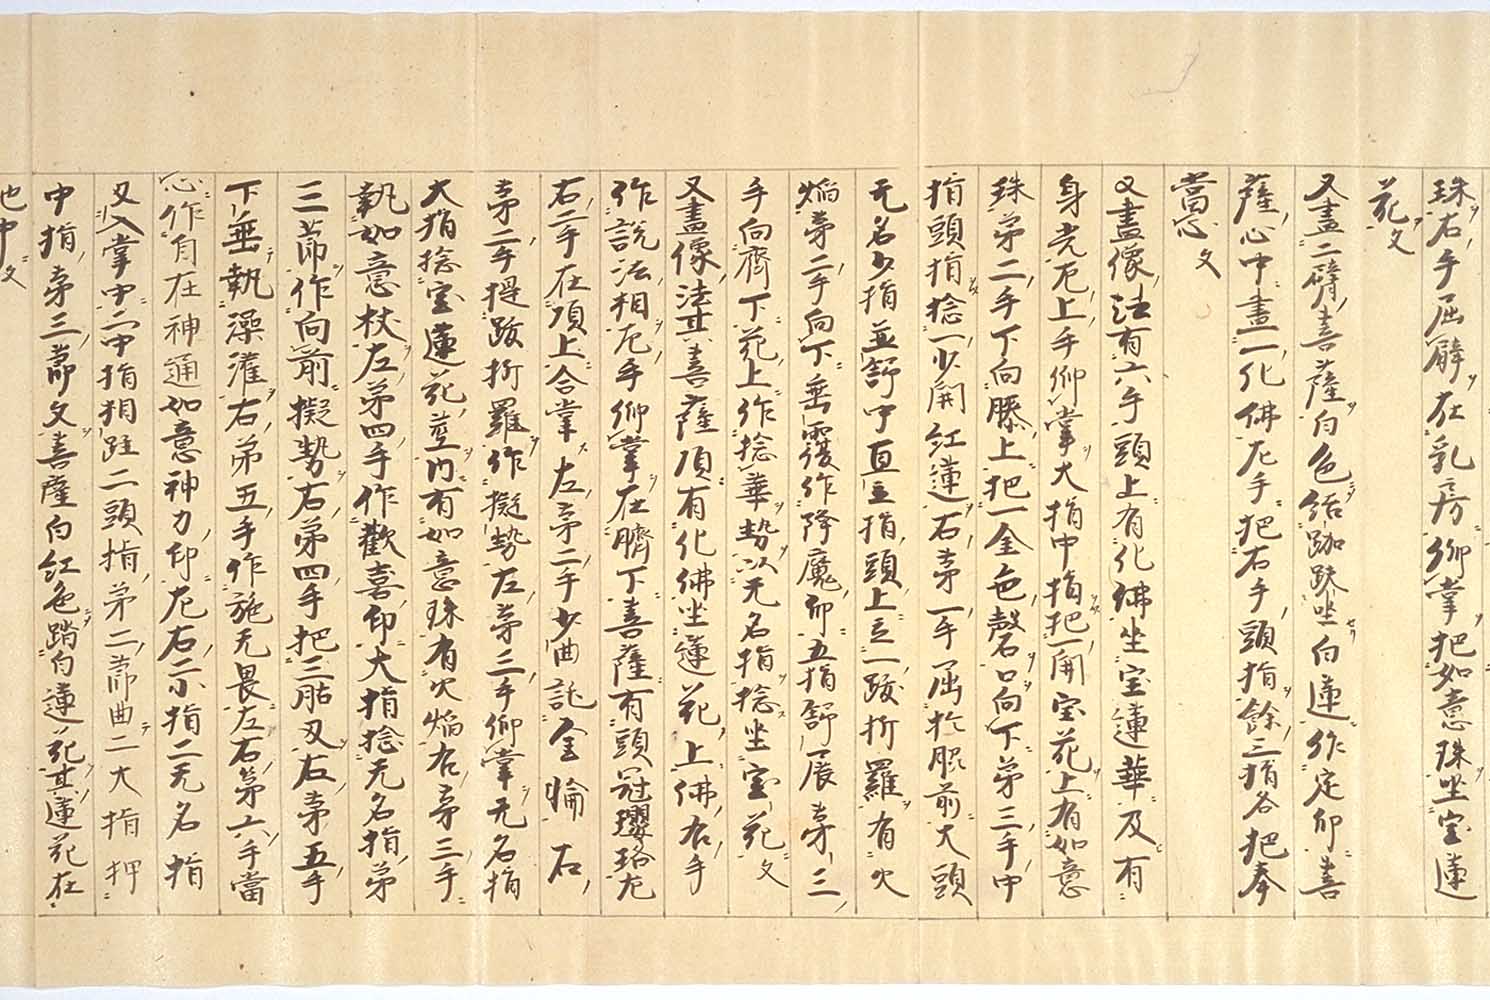 珠右手屈臂在乳房仰掌把如意珠坐宝蓮
花文
又畫二臂菩薩白色結跏趺坐白蓮作定印菩
薩心中畫一化佛左手把右手頭指餘三指各把拳
當心文
又畫像法有六手頭上有化佛坐宝蓮華及有
身光左上手仰掌大指中指把一開宝花上有如意
珠第二手下向膝上把一金色磬口向下第三手中
指頭指捻一少開紅蓮右第一手屈於𦙄前大頭
无名少指並舒中直立指頭上立一跋折羅有火
焔第二手向下垂覆作降魔印五指舒展第三
手向臍下花上作捻華勢以无名指捻坐宝花文
又畫像法其菩薩頂有化佛坐蓮花上佛右手
作説法相左手仰掌在臍下菩薩有頭冠瓔珞左
右二手在頂上合掌左第二手少曲託金輪右
第二手提跋折羅作擬勢左第三手仰掌无名指
大指捻宝蓮花臺内有如意珠有火焔右第三手
執如意杖左第四手作歡喜印大指捻无名指第
三節作向前擬勢右第四手把三胋叉左第五手
下垂執澡灌右第五手作施无畏左右第六手當
心作自在神通如意神力印左右二小指二无名指
叉入掌中二中指相跓二頭指第二節曲二大指押
中指第三節文菩薩白紅色踏白蓮花其蓮花在
池中文